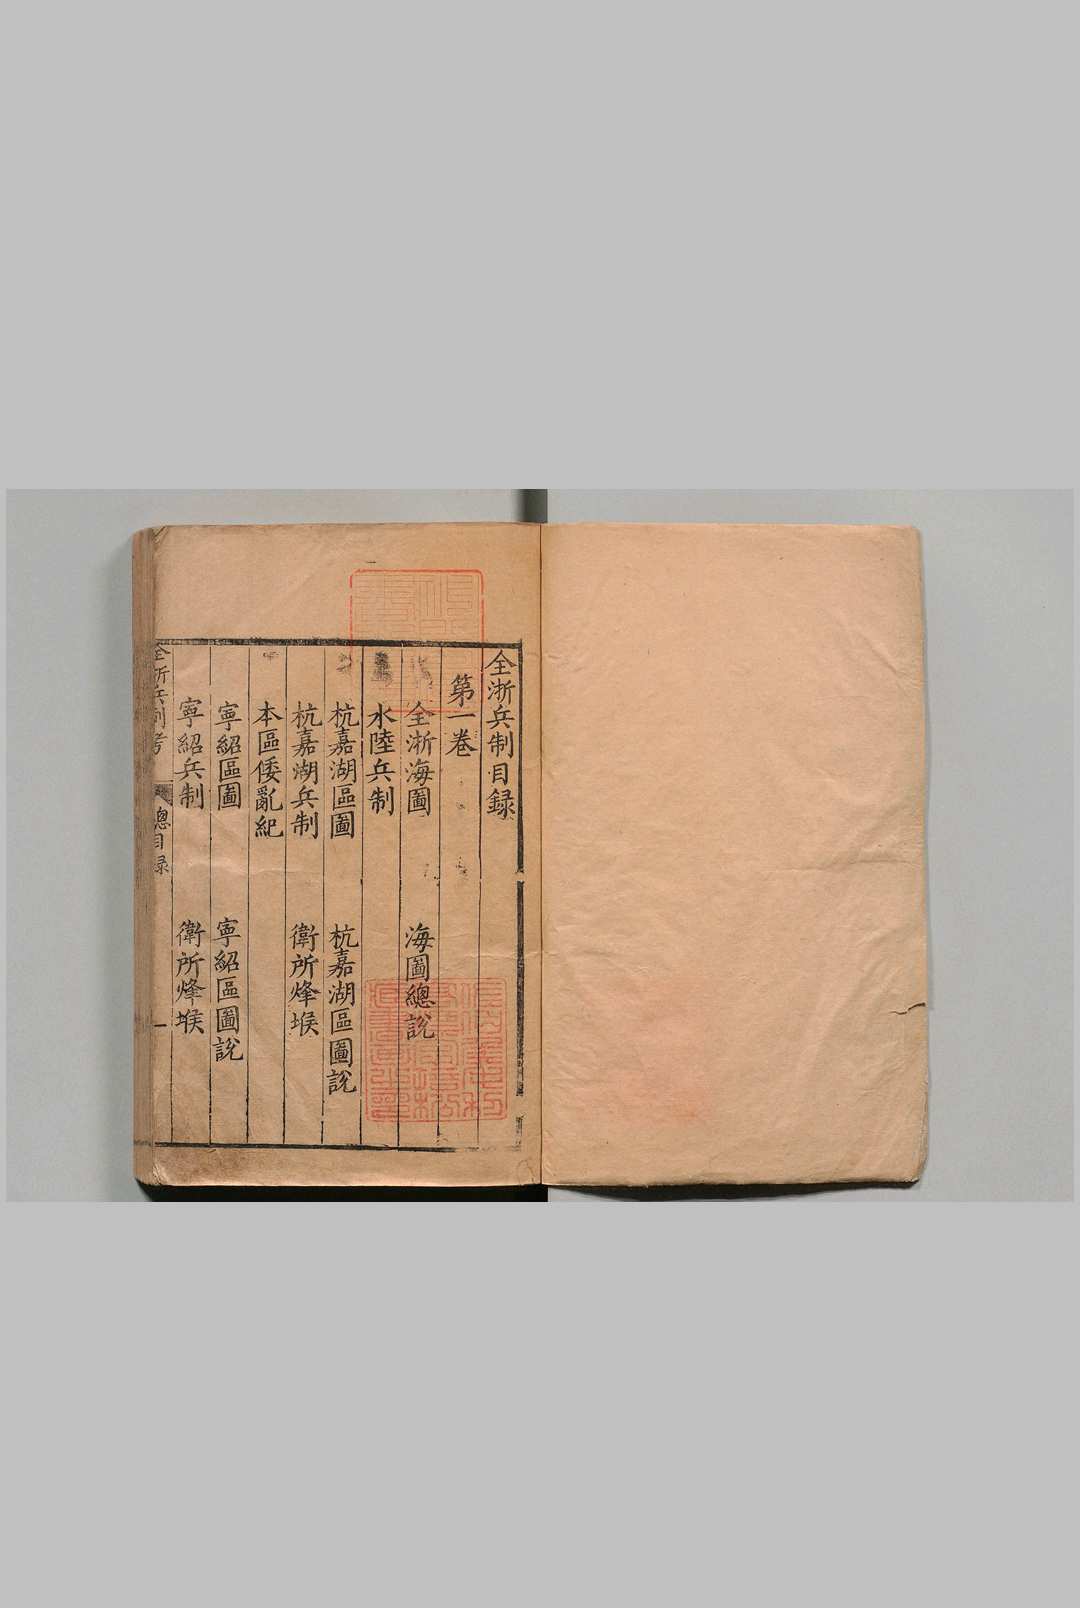 全浙兵制目録
第一卷
全浙海圖 海圖總說
水陸兵制
杭嘉湖區圖 杭嘉湖區圖說
杭嘉湖兵制 衛所烽堠
本區倭亂紀
寧紹區圖 寧紹區圖說
寧紹兵制 衛所烽堠
全浙兵制考 總目録 一